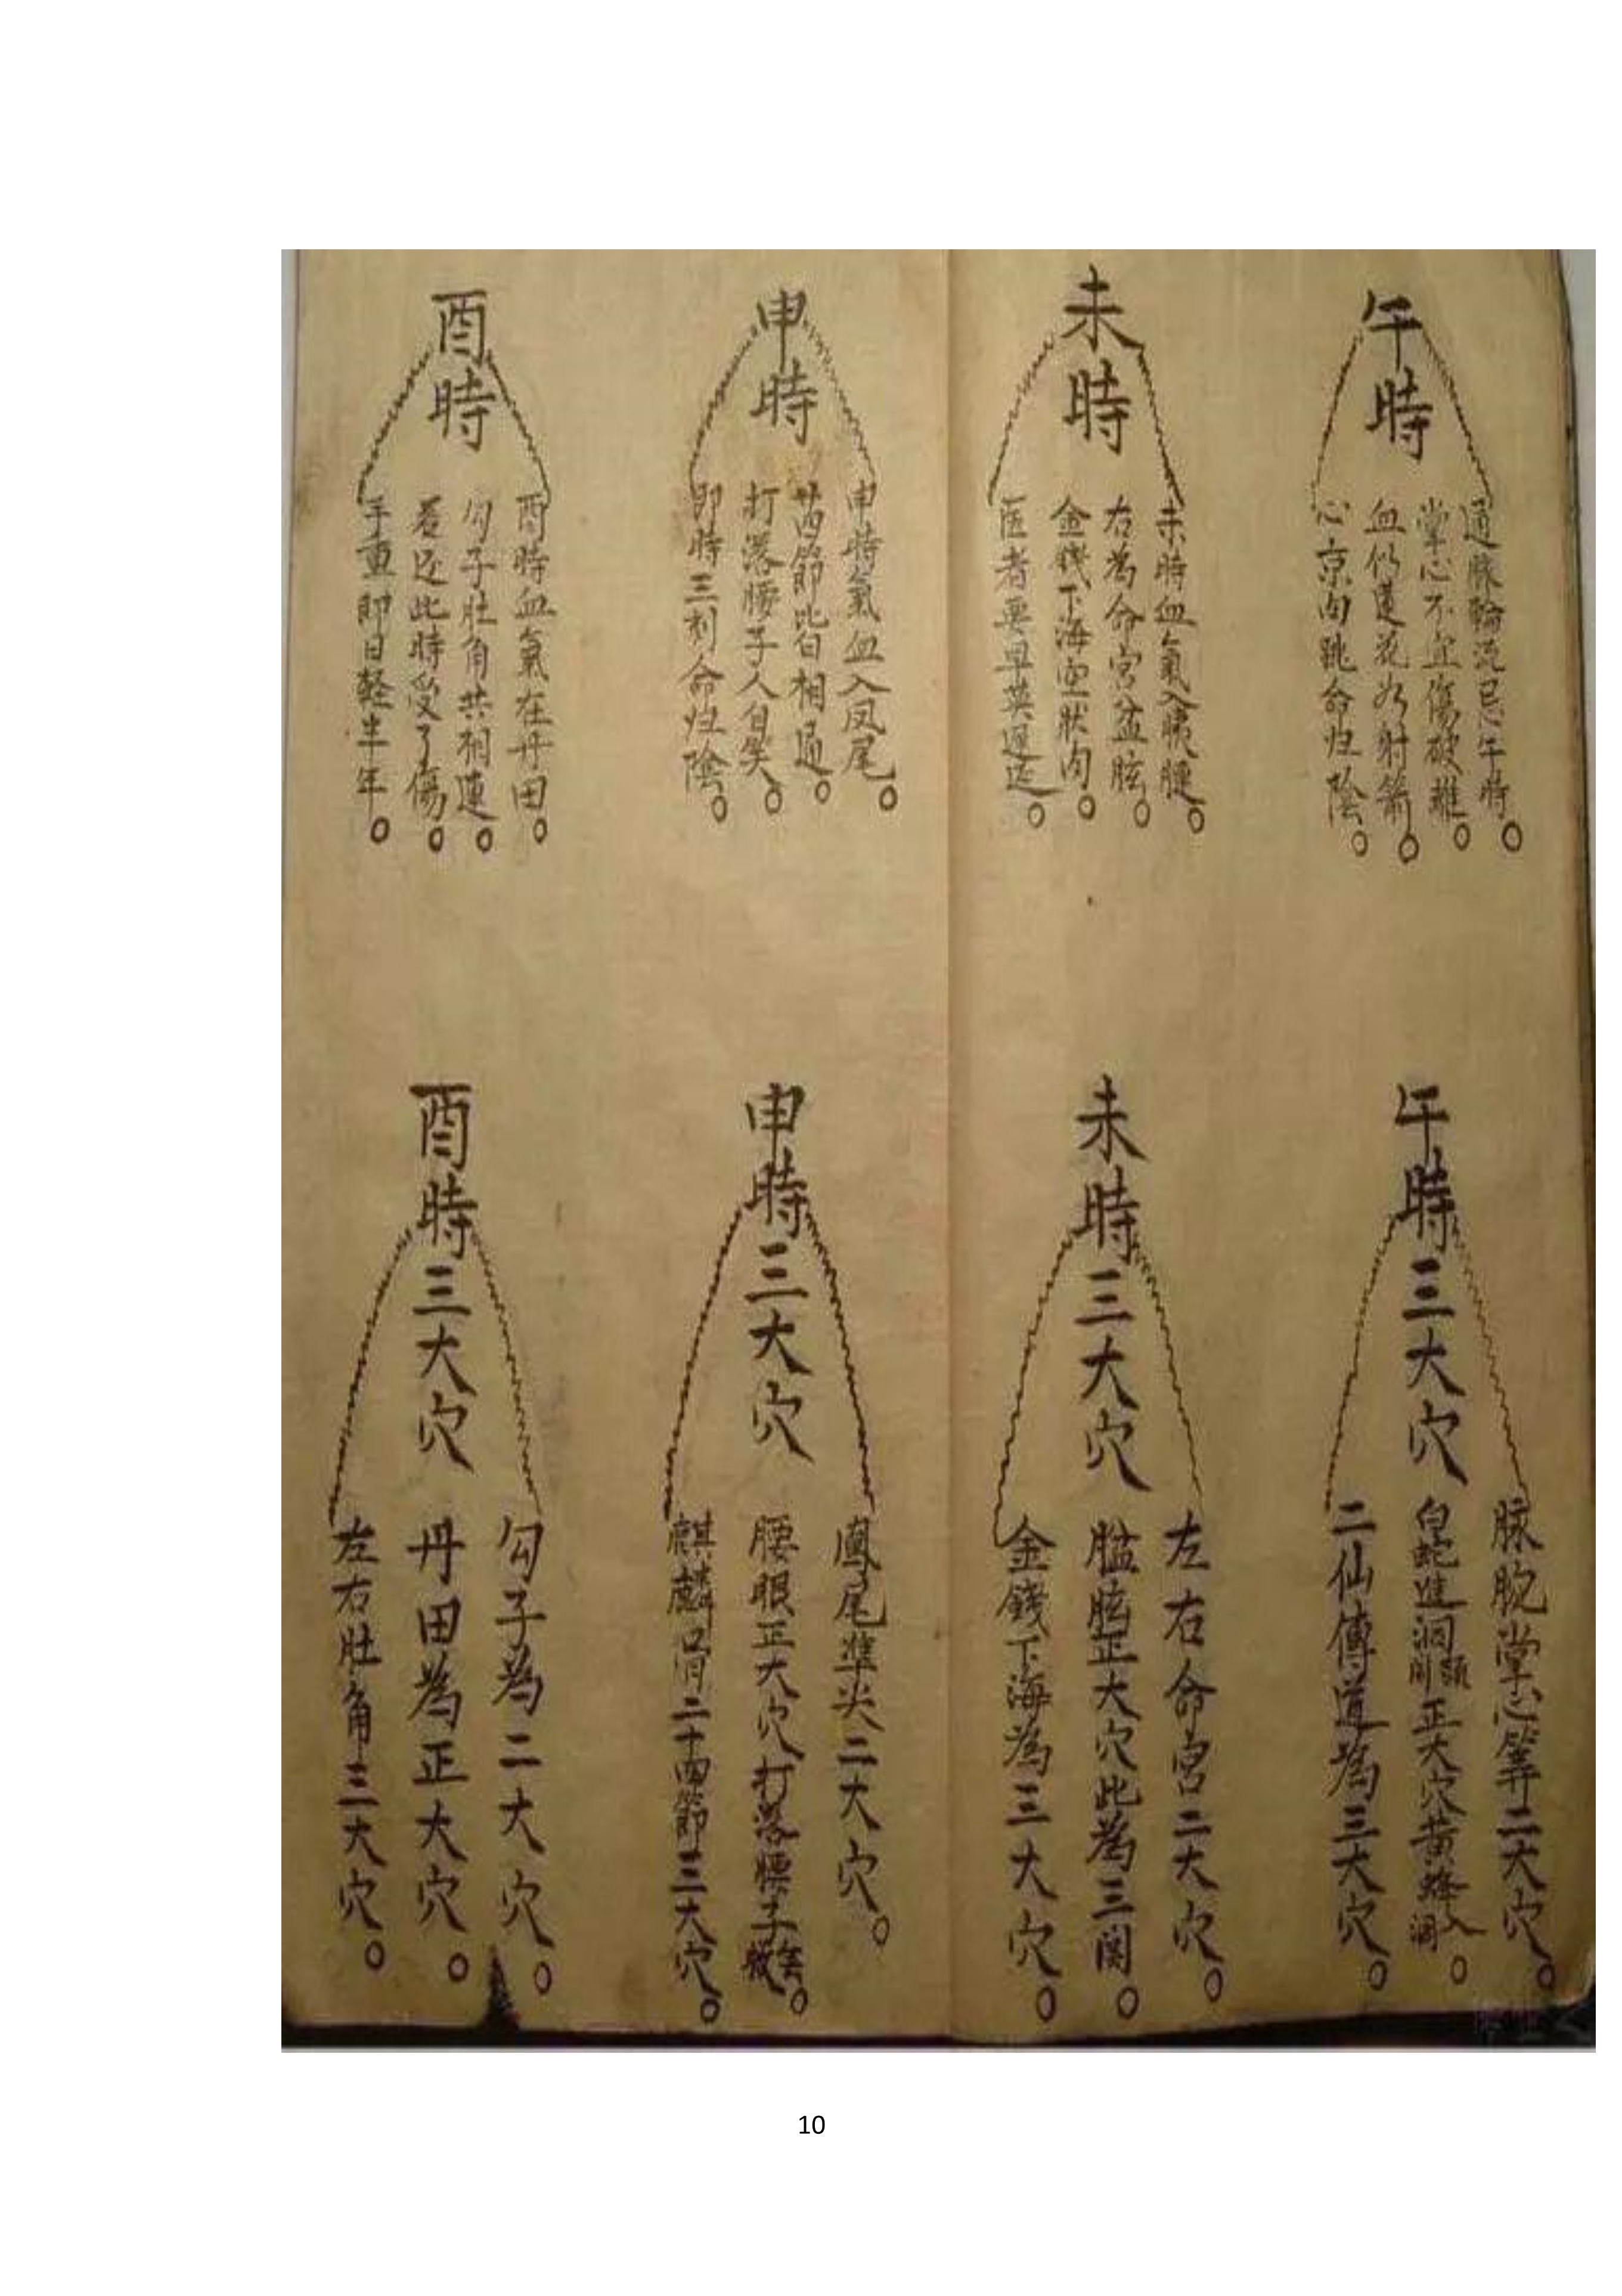 午時
通脉輪流忌午時
掌心不宜傷破離
血似蓮花水射箭
心京肉跳命归陰
未時
未時血氣入胰腱
右為命宮盆胘
金錢下海虚狀肉
医者要早莫遲延
申時
申時氣血入凤尾
廿四節比白相通
打落腰子人自笑
即時三刻命归陰
酉時
酉時血氣在丹田
勾子肚角共相連
若还此時受了傷
手重即日轻半年
午時三大穴
脉腕掌心筭二大穴
白蛇進洞 正大穴黄蜂入洞
二仙傳道為三大穴
未時三大穴
左右命宮二大穴
胘正大穴此為三関
金錢下海為三大穴
申時三大穴
鳳尾準尖二大穴
腰眼正大穴打落腰子
麒麟 二十四節三大穴
酉時三大穴
勾子為二大穴
丹田為正大穴
左右肚角三大穴
10